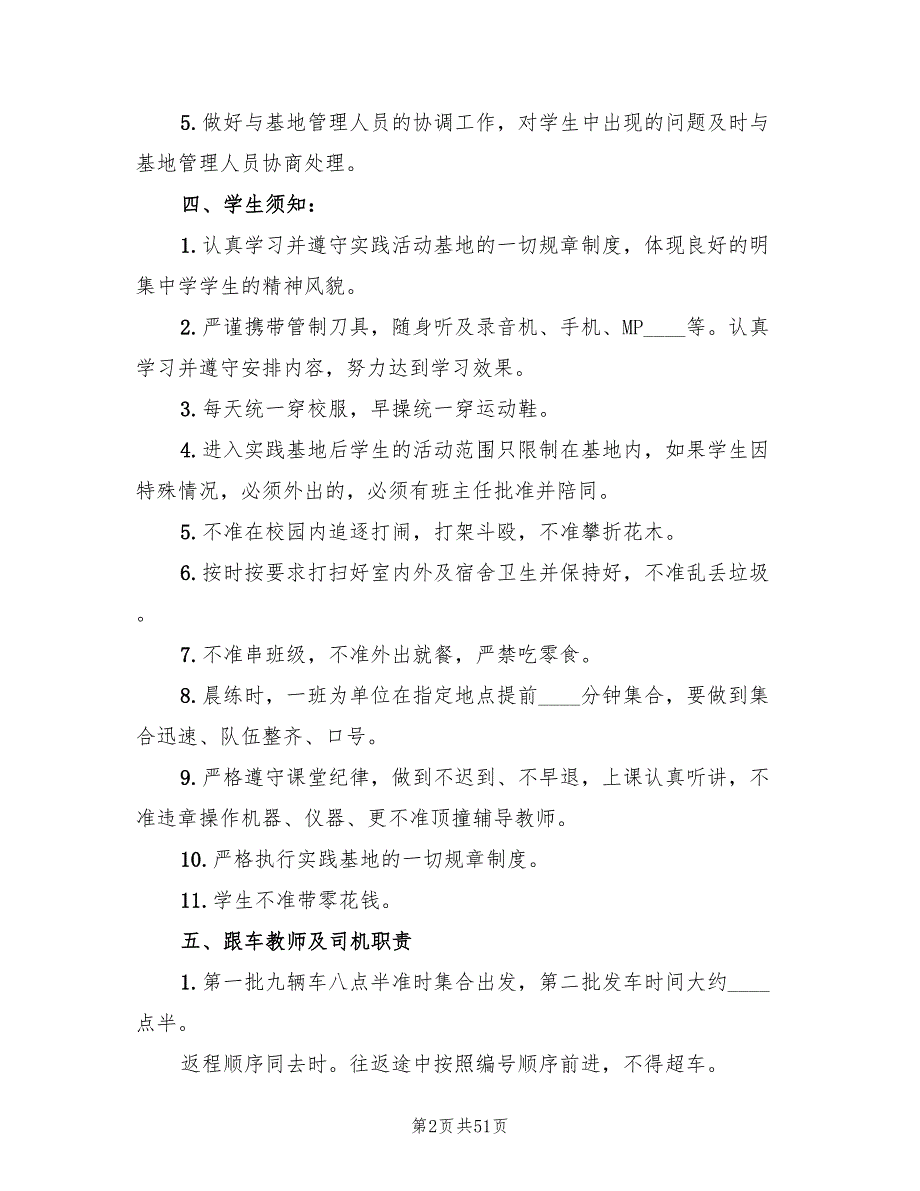 5. 做好与基地管理人员的协调工作，对学生中出现的问题及时与
基地管理人员协商处理。
四、学生须知：
1. 认真学习并遵守实践活动基地的一切规章制度，体现良好的明
集中学学生的精神风貌。
2. 严谨携带管制刀具，随身听及录音机、手机、MP____等。认真
学习并遵守安排内容，努力达到学习效果。
3. 每天统一穿校服，早操统一穿运动鞋。
4. 进入实践基地后学生的活动范围只限制在基地内，如果学生因
特殊情况，必须外出的，必须有班主任批准并陪同。
5. 不准在校园内追逐打闹，打架斗殴，不准攀折花木。
6. 按时按要求打扫好室内外及宿舍卫生并保持好，不准乱丢垃圾
。
7. 不准串班级，不准外出就餐，严禁吃零食。
8. 晨练时，一班为单位在指定地点提前____分钟集合，要做到集
合迅速、队伍整齐、口号。
9. 严格遵守课堂纪律，做到不迟到、不早退，上课认真听讲，不
准违章操作机器、仪器、更不准顶撞辅导教师。
10. 严格执行实践基地的一切规章制度。
11. 学生不准带零花钱。
五、跟车教师及司机职责
1. 第一批九辆车八点半准时集合出发，第二批发车时间大约____
点半。
返程顺序同去时。往返途中按照编号顺序前进，不得超车。
第2页共51页